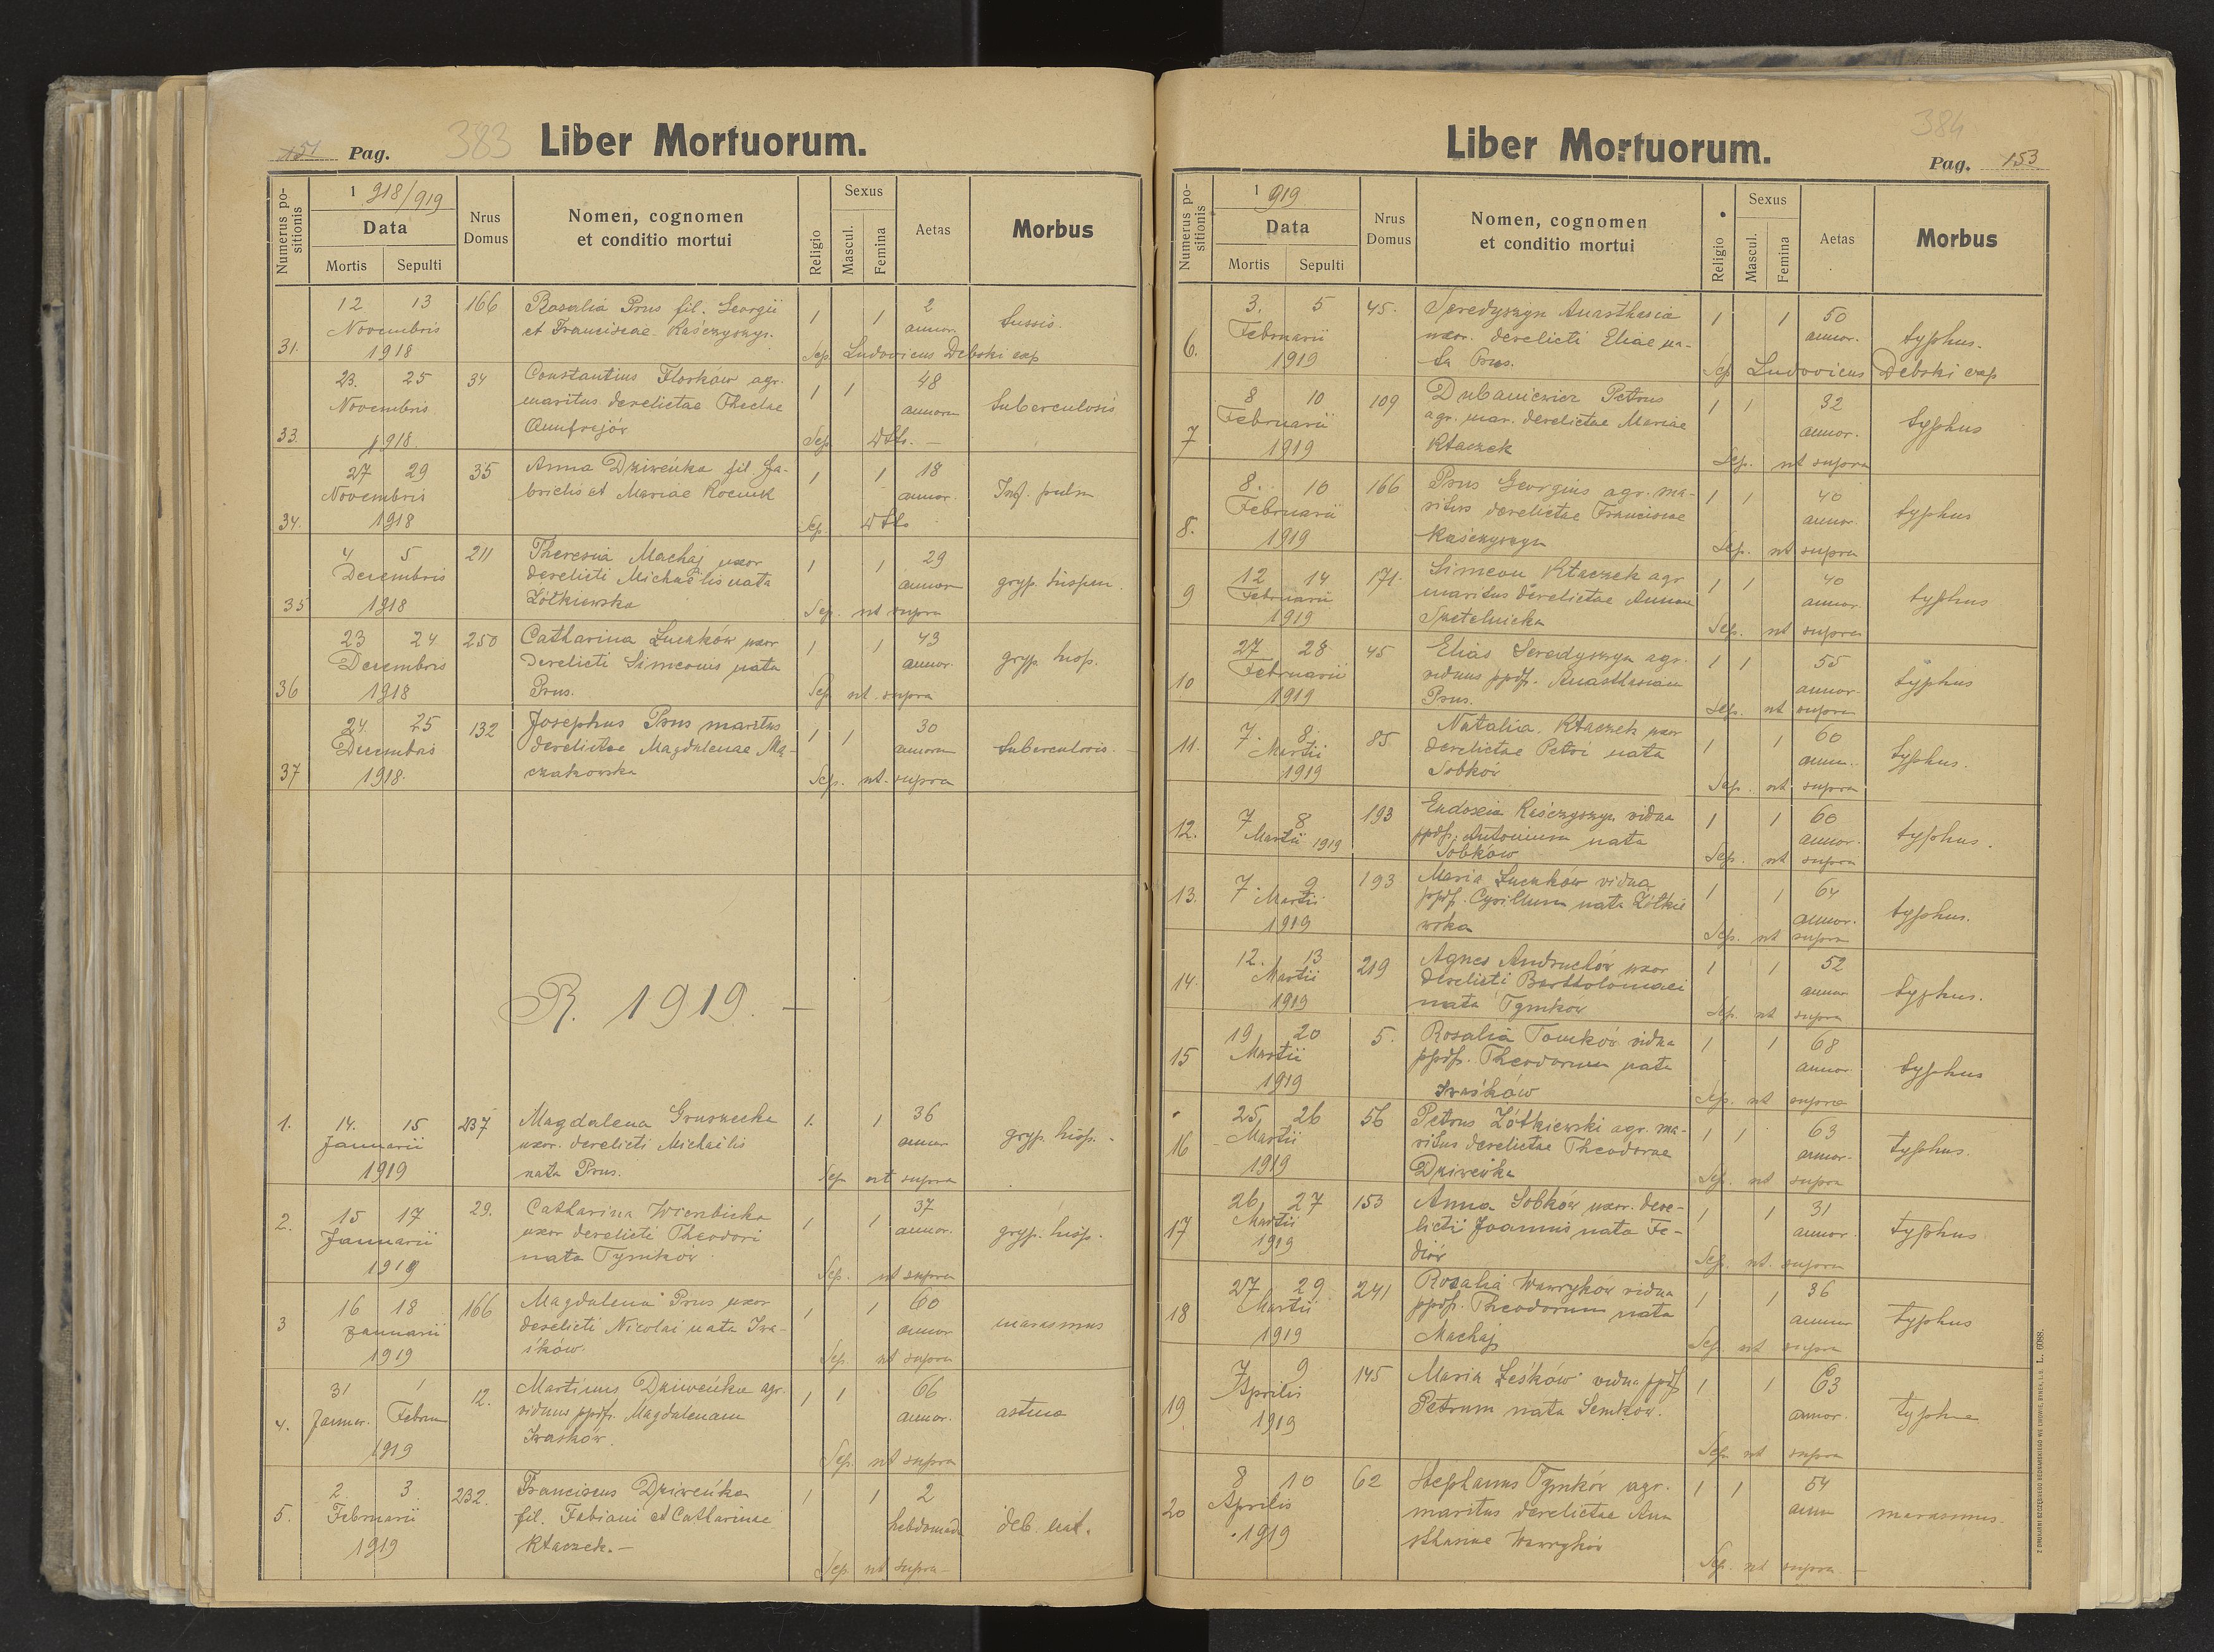 151 Pag. 383 Liber Mortuorum.
Numerus positionis
1918/919
Data
Mortis Sepulti
Nrus Domus
Nomen, cognomen
et conditio mortui
Religio
Sexus
Mascul. Femina
Aetas
Morbus
31. 12 13 Novembris 1918 166
Rosalia Prus fil. Georgii
et Franciscae Raśczyszyn.
1 1 2 annor. tussis.
Sep. Ludovicus Debski exp
33. 23. 25 Novembris 1918 34
Constantius Florków agr.
maritus derelictae Theclae
Onufrejów
1 1 48 annorum tuberculosis
Sep. dtto. —
34. 27 29 Novembris 1918 35
Anna Dziweńka fil. Ga-
brielis et Mariae Kociuk
1 1 18 annor. Inf. pulm
Sep. dtto
35 4 5 Decembris 1918 211
Theresia Machaj uxor
derelicti Michaelis nata
Żółkiewska
1 1 29 annor gryp. hispan.
Sep. ut supra
36 23 24 Decembris 1918 250
Catharina Łuczków uxor
derelicti Simeonis nata
Prus.
1 1 43 annor. gryp. hisp.
Sep. ut supra
37 24. 25 Decembris 1918. 132
Josephus Prus maritus
derelictae Magdalenae Ma-
czakowska
1 1 30 annorum tuberculosis. —
Sep. ut. supra
R. 1919. —
1. 14. 15 Januarii 1919 237
Magdalena Gruszecka
uxor. derelicti Michaelis
nata Prus.
1. 1 36 annor gryp. hisp. -
Sep ut supra
2. 15 17 Januarii 1919 29.
Catharina Wierzbicka
uxor derelicti Theodori
nata Tymków
1 1 37 annor. gryp. hisp. -
Sep. ut supra
3 16 18 Januarii 1919 166
Magdalena Prus uxor
derelicti Nicolai nata Iwa-
śków.
1 1 60 annor marasmus
Sep. ut supra
4. 31 1 Januar. Febru 1919 12.
Martinus Dziweńka agr.
viduus ppdf. Magdalenam
Iwasków.
1 1 66 annor. astma
Sep. ut supra
5. 2. 3. Februarii 1919 232.
Franciscus Dziweńka
fil. Fabiani et Catharinae
Ktaczek. —
1 1 2 hebdomad deb. nat.
Sep. ut supra —
Liber Mortuorum. 384
Pag. 153
Numerus positionis
1919
Data
Mortis Sepulti
Nrus Domus
Nomen, cognomen
et conditio mortui
Religio
Sexus
Mascul. Femina
Aetas
Morbus
6. 3. 5 Februarii 1919 45.
Seredyszyn Anasthasia
uxor. derelicti Eliae na-
ta Prus.
1 1 50 annor. typhus.
Sep Ludovicus Debski exp
7 8 10 Februarii 1919 109
Dubaniewicz Petrus
agr. mar. derelictae Mariae
Ktaczek
1 1 32 annor. typhus
Sep. ut supra
8. 8. 10 Februarii 1919 166
Prus Georgius agr. ma-
ritus derelictae Franciscae
Raśczyszyn
1 1 40 annor. typhus
Sep. ut supra
9 12 14 Februarii 1919 171.
Simeon Ktaczek agr
maritus derelictae Annae
Smetelnicka
1 1 40 annor. typhus
Sep. ut supra
10 27 28 Februarii 1919 45
Elias Seredyszyn agr.
viduus ppdf. Anasthasiam
Prus.
1 1 55 annor. typhus
Sep. ut supra
11. 7. 8. Martii 1919 85
Natalia Ktaczek uxor
derelictae Petri nata
Sobków
1 1 60 annor. typhus.
Sep. ut supra
12. 7 8 Martii 1919 193
Eudoxia Raśczyszyn vidua
ppdf. Antonium nata
Sobków
1 1 60 annor. typhus.
Sep. ut supra
13. 7. 9 Martii 1919 193
Maria Łuczków vidua
ppdf. Cyrillum nata Żółkie
wska
1 1 64 annor. typhus.
Sep. ut supra
14. 12. 13 Martii 1919 219
Agnes Andruchów uxor
derelicti Bartholomaei
nata Tymków
1 1 52 annor typhus.
Sep. ut supra
15 19 20 Martii 1919 5.
Rosalia Tomków vidua
ppdf. Theodorum nata
Iwaśków
1 1 68 annor. typhus
Sep. ut supra
16 25 26 Martii 1919 56
Petrus Żółkiewski agr. ma-
ritus derelictae Theodorae
Dziweńka
1 1 63 annor. typhus.
Sep. ut supra
17 26 27 Martii 1919 153
Anna Sobków uxor. dere-
licti Joannis nata Fe-
diów
1 1 31 annor. typhus
Sep. ut. supra
18 27 29 Martii 1919 241
Rozalia Wawryków vidua
ppdf. Theodorum nata
Machaj
1 1 36 annor typhus
Sep. ut supra
19 7 9 Aprilis 1919 145
Maria Leśków vidua ppdf
Petrum nata Semków.
1 1 63 annor. typhus
Sep. ut supra
20 8 10 Aprilis 1919 62
Stephanus Tymków agr.
maritus derelictae Ana
sthasiae Wawryków
1 1 54 annor marasmus.
Sep. ut supra —
Z DRUKARNI SZCZĘSNEGO BEDNARSKIEGO WE LWOWIE, RYNEK, L. 9. L. 6088.